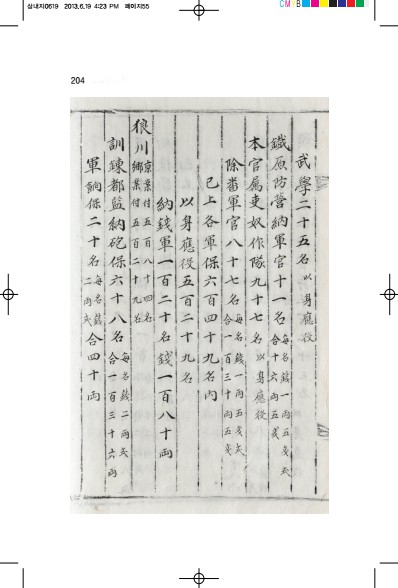 삼내지0619 2013.6.19 4:23 PM 페이지55
204
武學二十五名 以身應役
鐵原防營納軍官十一名 每名錢一兩五戔式 合十六兩五戔
本官屬吏奴作隊九十七名 以身應役
除番軍官八十七名 每名錢一兩五戔式 合一百三十兩五戔
已上各軍保六百四十九名內
以身應役五百二十九名
納錢軍一百二十名錢一百八十兩
狼川 京案付五百八十四名 鄉案付五百二十九名
訓鍊都監納砲保六十八名 每名錢二兩式 合一百三十六兩
軍餉保二十名 每名錢二兩式 合四十兩